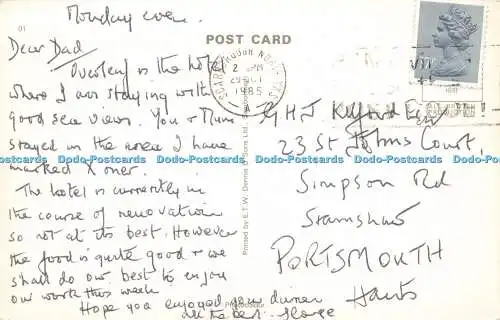 Monday eve.
01
POST CARD
Dear Dad
Overleaf is the hotel
where I am staying with
good sea views. You & Mum
stayed in the area I have
marked X over.
The hotel is currently in
the course of renovation
so not at its best. However
the food is quite good & we
shall do our best to enjoy
our work this week
Hope you enjoyed your dinner
all the best.
SCARBOROUGH NORTH
2 PM
29 OCT
1985
Printed by E.T.W. Dennis & Sons Ltd.
G H J Esq
23 St Johns Court,
Simpson Rd
Stamshaw
PORTSMOUTH
Hants
Dodo-Postcards Dodo-Postcards Dodo-Postcards Dodo-Postcards Dodo-Postcards Dodo-Postcards